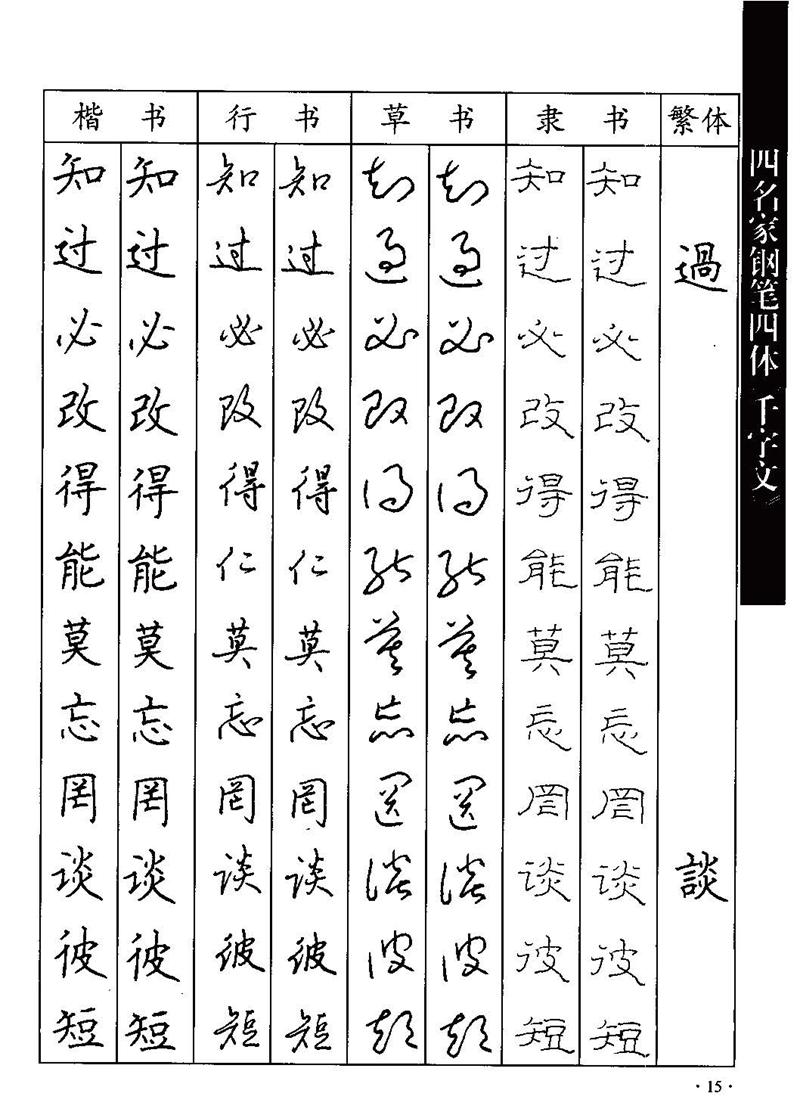 四名家钢笔四体《千字文》
楷书 行书 草书 隶书 繁体
知过必改得能莫忘罔谈彼短
知过必改得能莫忘罔谈彼短
知过必改得仁莫忘罔谈彼短
知过必改得仁莫忘罔谈彼短
知过必改得能莫忘罔谈彼短
知过必改得能莫忘罔谈彼短
知过必改得能莫忘罔谈彼短
知过必改得能莫忘罔谈彼短
過 談
·15·